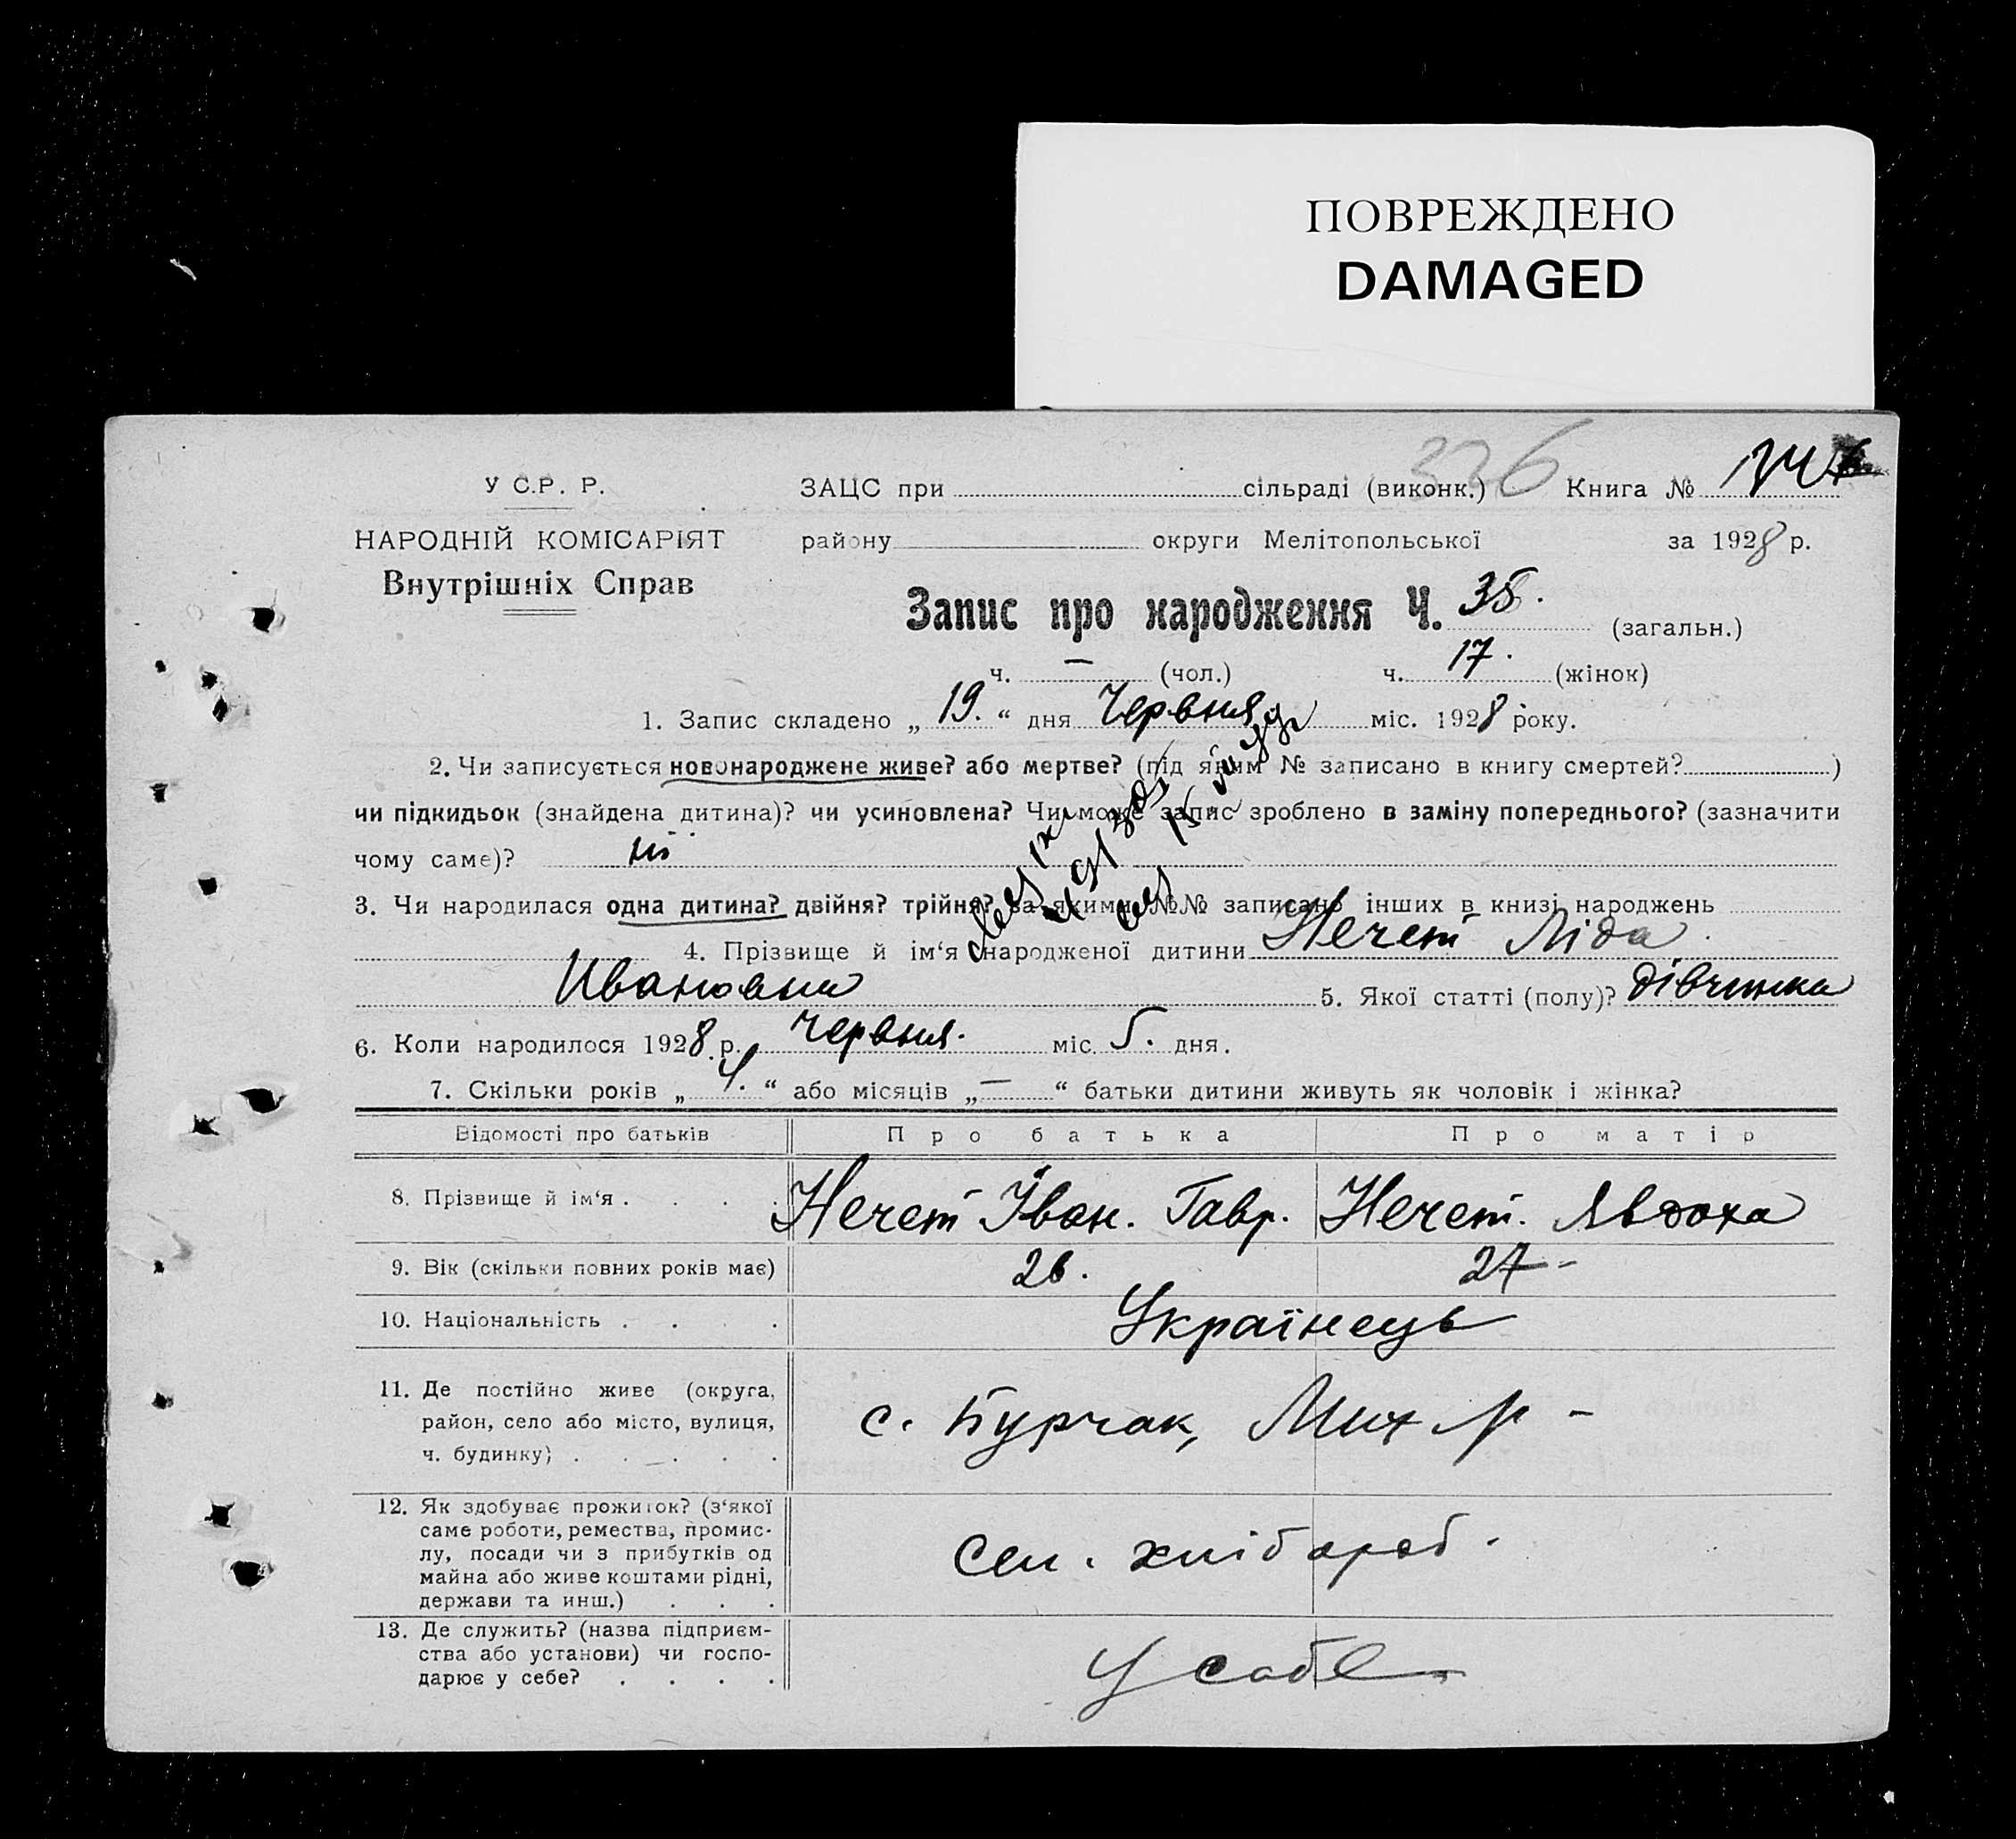 ПОВРЕЖДЕНО
DAMAGED
336
У С.Р. Р. ЗАЦС при сільраді (виконк.) Книга №
НАРОДНІЙ КОМІСАРІЯТ району округи Мелітопольської за 1928 р.
Внутрішніх Справ
Запис про народження Ч. 35. (загальн.)
ч. — (чол.) ч. 17. (жінок)
1. Запис складено „ 19. “ дня Червня міс. 1928 року.
2. Чи записується новонароджене живе? або мертве? (під яким № записано в книгу смертей? )
чи підкидьок (знайдена дитина)? чи усиновлена? Чи може запис зроблено в заміну попереднього? (зазначити
чому саме)? ні
3. Чи народилася одна дитина? двійня? трійня? за якими №№ записано інших в книзі народжень
4. Прізвище й ім‘я народженої дитини Нечет Ліда
Ивановна 5. Якої статті (полу)? дівчинка
6. Коли народилося 1928 р. Червня. міс. 5. дня.
7. Скільки років „ 4. “ або місяців „ — “ батьки дитини живуть як чоловік і жінка?
Відомості про батьків Про батька Про матір
8. Прізвище й ім‘я . . . . Нечет Іван. Гавр. Нечет. Явдоха
9. Вік (скільки повних років має) 26. 27-
10. Національність . . . Українець
11. Де постійно живе (округа,
район, село або місто, вулиця,
ч. будинку) . . . . . с. Бурчак, Мих р -
12. Як здобуває прожиток? (з‘якої
саме роботи, ремества, промис-
лу, посади чи з прибутків од
майна або живе коштами рідні,
держави та инш.) . . . Сел. хлібороб.
13. Де служить? (назва підприєм-
ства або установи) чи госпо-
дарює у себе? . . . . У собе